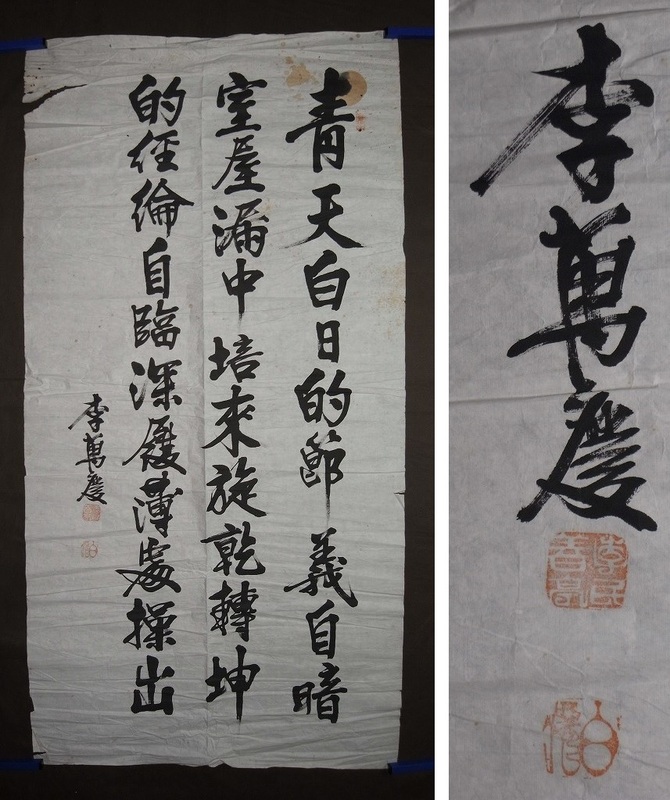 青天白日的節義自暗
室屋漏中培來旋乾轉坤
的經綸自臨深履薄處操出
李萬慶
李萬慶